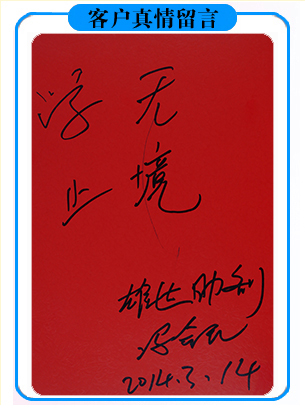 客户真情留言
学无
止境
雄世助制
2014.3.14